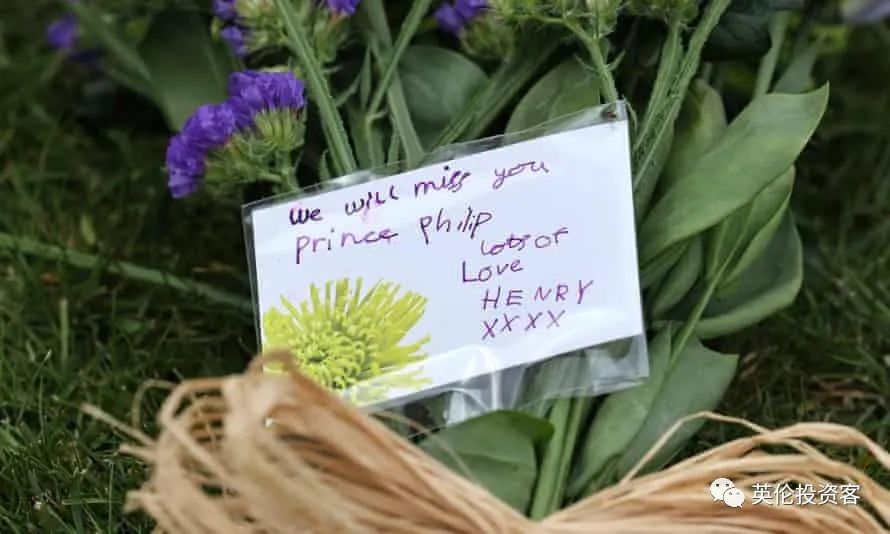 We will miss you
Prince Philip
Lots OF
Love
HENRY
XXXX
英伦投资客